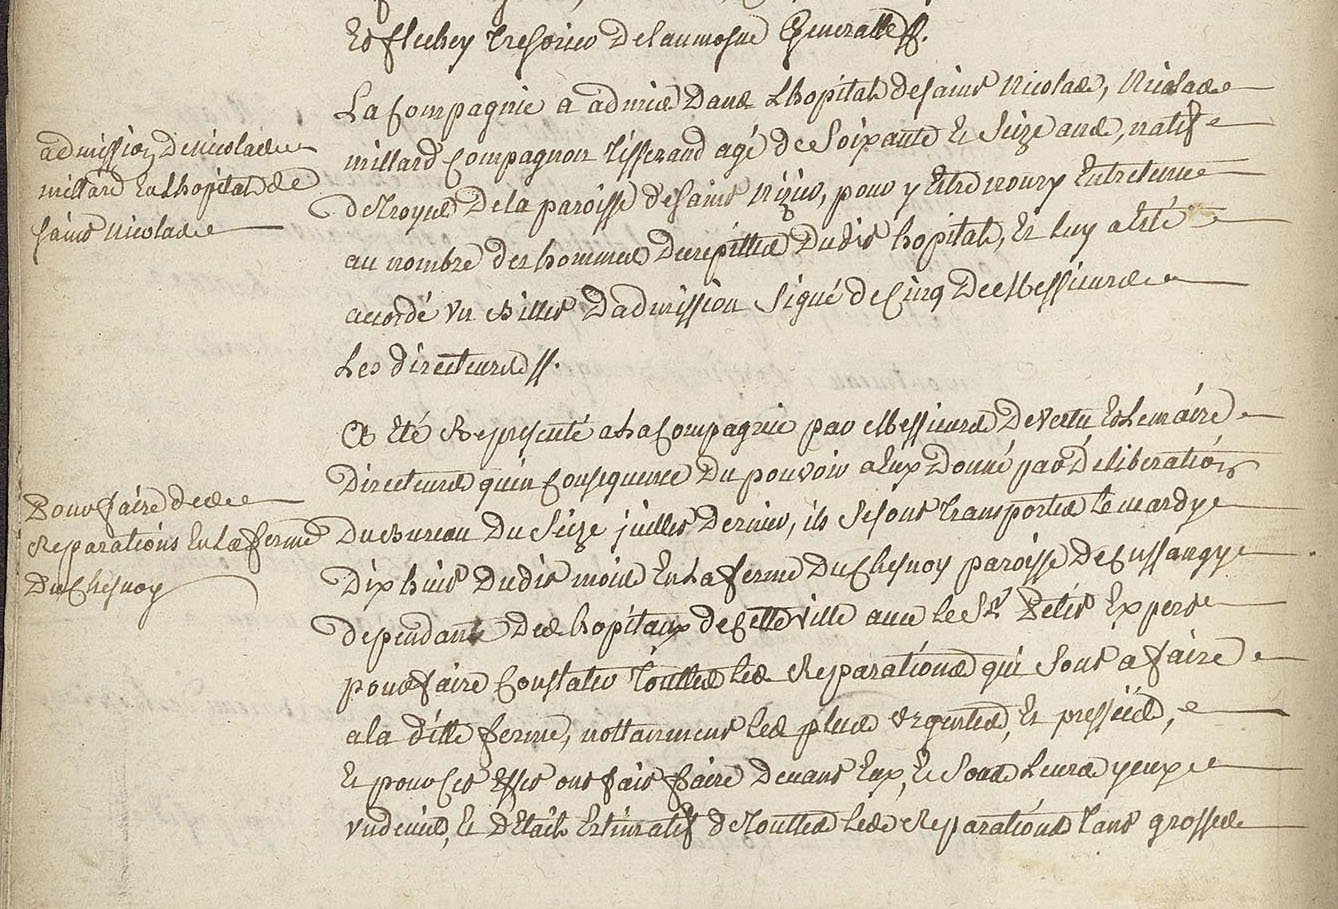 Et fluchey Tresorier de l'aumosne Generalle ff.
La Compagnie a admis dans L'hopital de saint Nicolas, Nicolas
millard Compagnon Tisserand agé de Soixante Et Seize ans, natif
de Troyes De la paroisse de saint Nizier, pour y Etre noury Entretenu
au nombre des hommes Decrepittes Dudit hopital, Et luy a Eté
accordé un Billet D'admission Signé de Cinq De Messieurs
Les directeurs ff.
admission de nicolas
millard En L'hopital de
saint nicolas
A Eté Representé a La Compagnie par Messieurs De vertu Et Lemaire
Directeurs qu'en Consequence Du pouvoir a Eux Donné par Deliberation
Du Bureau Du Seize juillet Dernier, ils Se sont Transportés Le mardy
Dix huit Dudit mois En La ferme Du Chesnoy paroisse De Cussangy
dependante Des hopitaux de Cette ville avec le Sr. Petit Expert
pour faire Constater Touttes les Reparations qui Sont a faire
a la ditte ferme, nottamment les plus urgentes, Et pressées,
Et pour Cet Effet ont fait faire Devant Eux, Et Sous Leurs yeux
un devis, Et detail Estimatif de Touttes les Reparations tant grosses
Pour faire des
Reparations En La ferme
Du Chesnoy